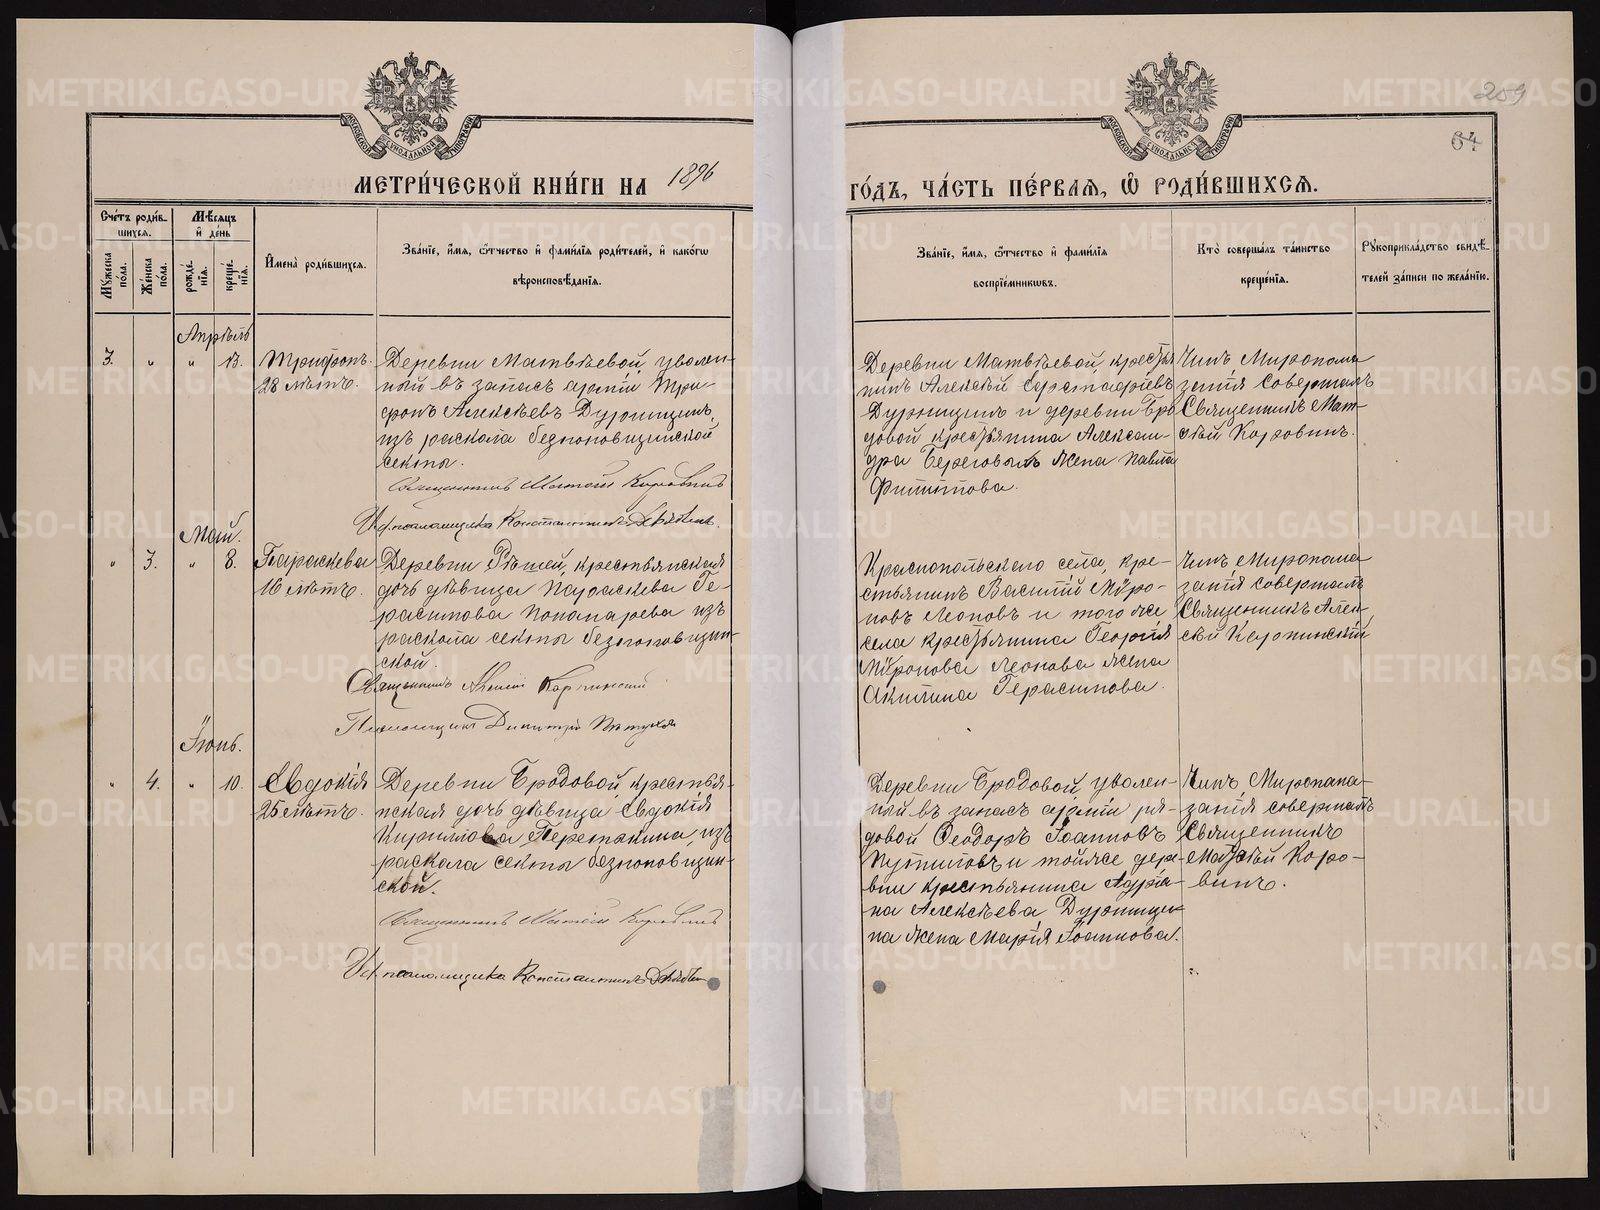 259
64
МЕТРИ́ЧЕСКОЙ КНИ́ГИ НА 1896
ГО́ДЪ, ЧА́СТЬ ПЕ́РВАѦ, Ѡ РОДИ́ВШИХСѦ.
Сче́тъ роди́в-
шихсѧ.
Мꙋ́жеска
по́ла.
Же́нска
по́ла.
Мѣ́сѧцъ
и҆ де́нь
рожде́-
нїѧ.
креще́-
нїѧ.
И҆мена̀ роди́вшихсѧ.
Зва́нїе, и҆́мѧ, ѻ҆́тчество и҆ фами́лїѧ роди́телей, и҆ како́гѡ
вѣроисповѣ́данїѧ.
Зва́нїе, и҆́мѧ, ѻ҆́тчество и҆ фами́лїѧ
воспрїе́мникѡвъ.
Кто̀ соверша́лъ та́инство
креще́нїѧ.
Рꙋкоприкла́дство свидѣ́-
телей за́писи по жела́нїю.
Апрѣль
3. " " 13. Трифонъ
28 лѣтъ.
Деревни Матвѣевой, уволен-
ный въ запасъ арміи Три-
фонъ Алексѣевъ Дурницинъ,
изъ раскола безпоповщинской
секты.
Священникъ Матѳій Коровинъ
И.д. псаломщика Константинъ
Деревни Матвѣевой, крестья
нинъ Алексѣй
Дурницинъ и деревни Бро
довой крестьянина Алексан-
дра Береговыхъ жена Павла
Филиппова.
Чинъ Миропома
занія совершалъ
Священникъ Мат-
ѳій Коровинъ.
Май.
" 3. " 8. Параскева
16 лѣтъ.
Деревни крестьянская
дочь дѣвица Параскева Ге-
расимова Понамарева изъ
раскола секты безпоповщин-
ской.
Священникъ Алексій Карпинскій
Псаломщикъ Димитрій
Краснопольскаго села, кре-
стьянинъ Василій Мѵро-
новъ Леоновъ и того же
села крестьянина Георгія
Мѵронова Леонова жена
Акилина Герасимова.
Чинъ Миропома
занія совершалъ
Священникъ Алек-
сій Карпинскій
Іюнь.
" 4. " 10. Евдокія
25 лѣтъ.
Деревни Бродовой, крестья-
нская дочь дѣвица Евдокія
Кириллова Перетякина, изъ
раскола секты безпоповщин-
ской.
Священникъ Матѳій Коровинъ
И.д. псаломщика Константинъ
Деревни Бродовой, уволен-
ный въ запасъ арміи ря-
довой Ѳеодоръ Іоанновъ
и тойже дере
вни крестьянина Адріа-
на Алексѣева Дурници-
на жена Марія Іоаннова.
Чинъ Миропома-
занія совершалъ
Священникъ
Матѳій Коро-
винъ.